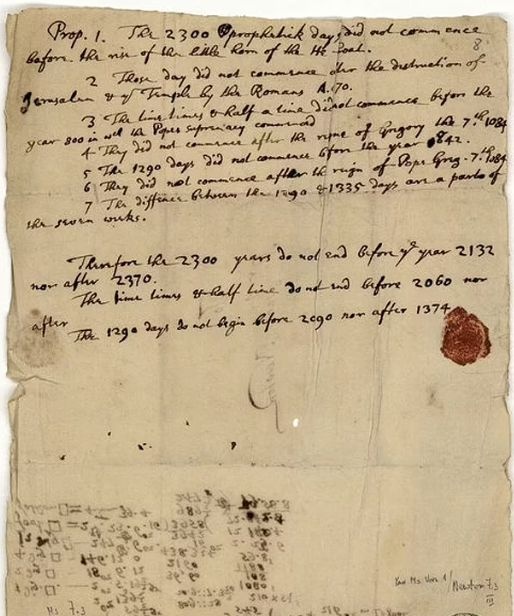 Prop. 1. The 2300 prophetick days did not commence
before the rise of the little horn of the He Goat.
8
2 Those day did not commence after the destruction of
Jerusalem & ye Temple by the Romans A. 70.
3 The time times & half a time did not commence before the
year 800 in wch the Popes supremacy commenced
4 They did not commence after the reigne of Gregory the 7th. 1084
5 The 1290 days did not commence before the year 842.
6 They did not commence after the reign of Pope Greg. 7th 1084
7 The difference between the 1290 & 1335 days are a parts of
the seven weeks.
Therefore the 2300 years do not end before ye year 2132
nor after 2370.
The time times & half time do not end before 2060 nor
after
The 1290 days do not begin before 2090 nor after 1374
Newton
Newton 7.3
Ms 7.3